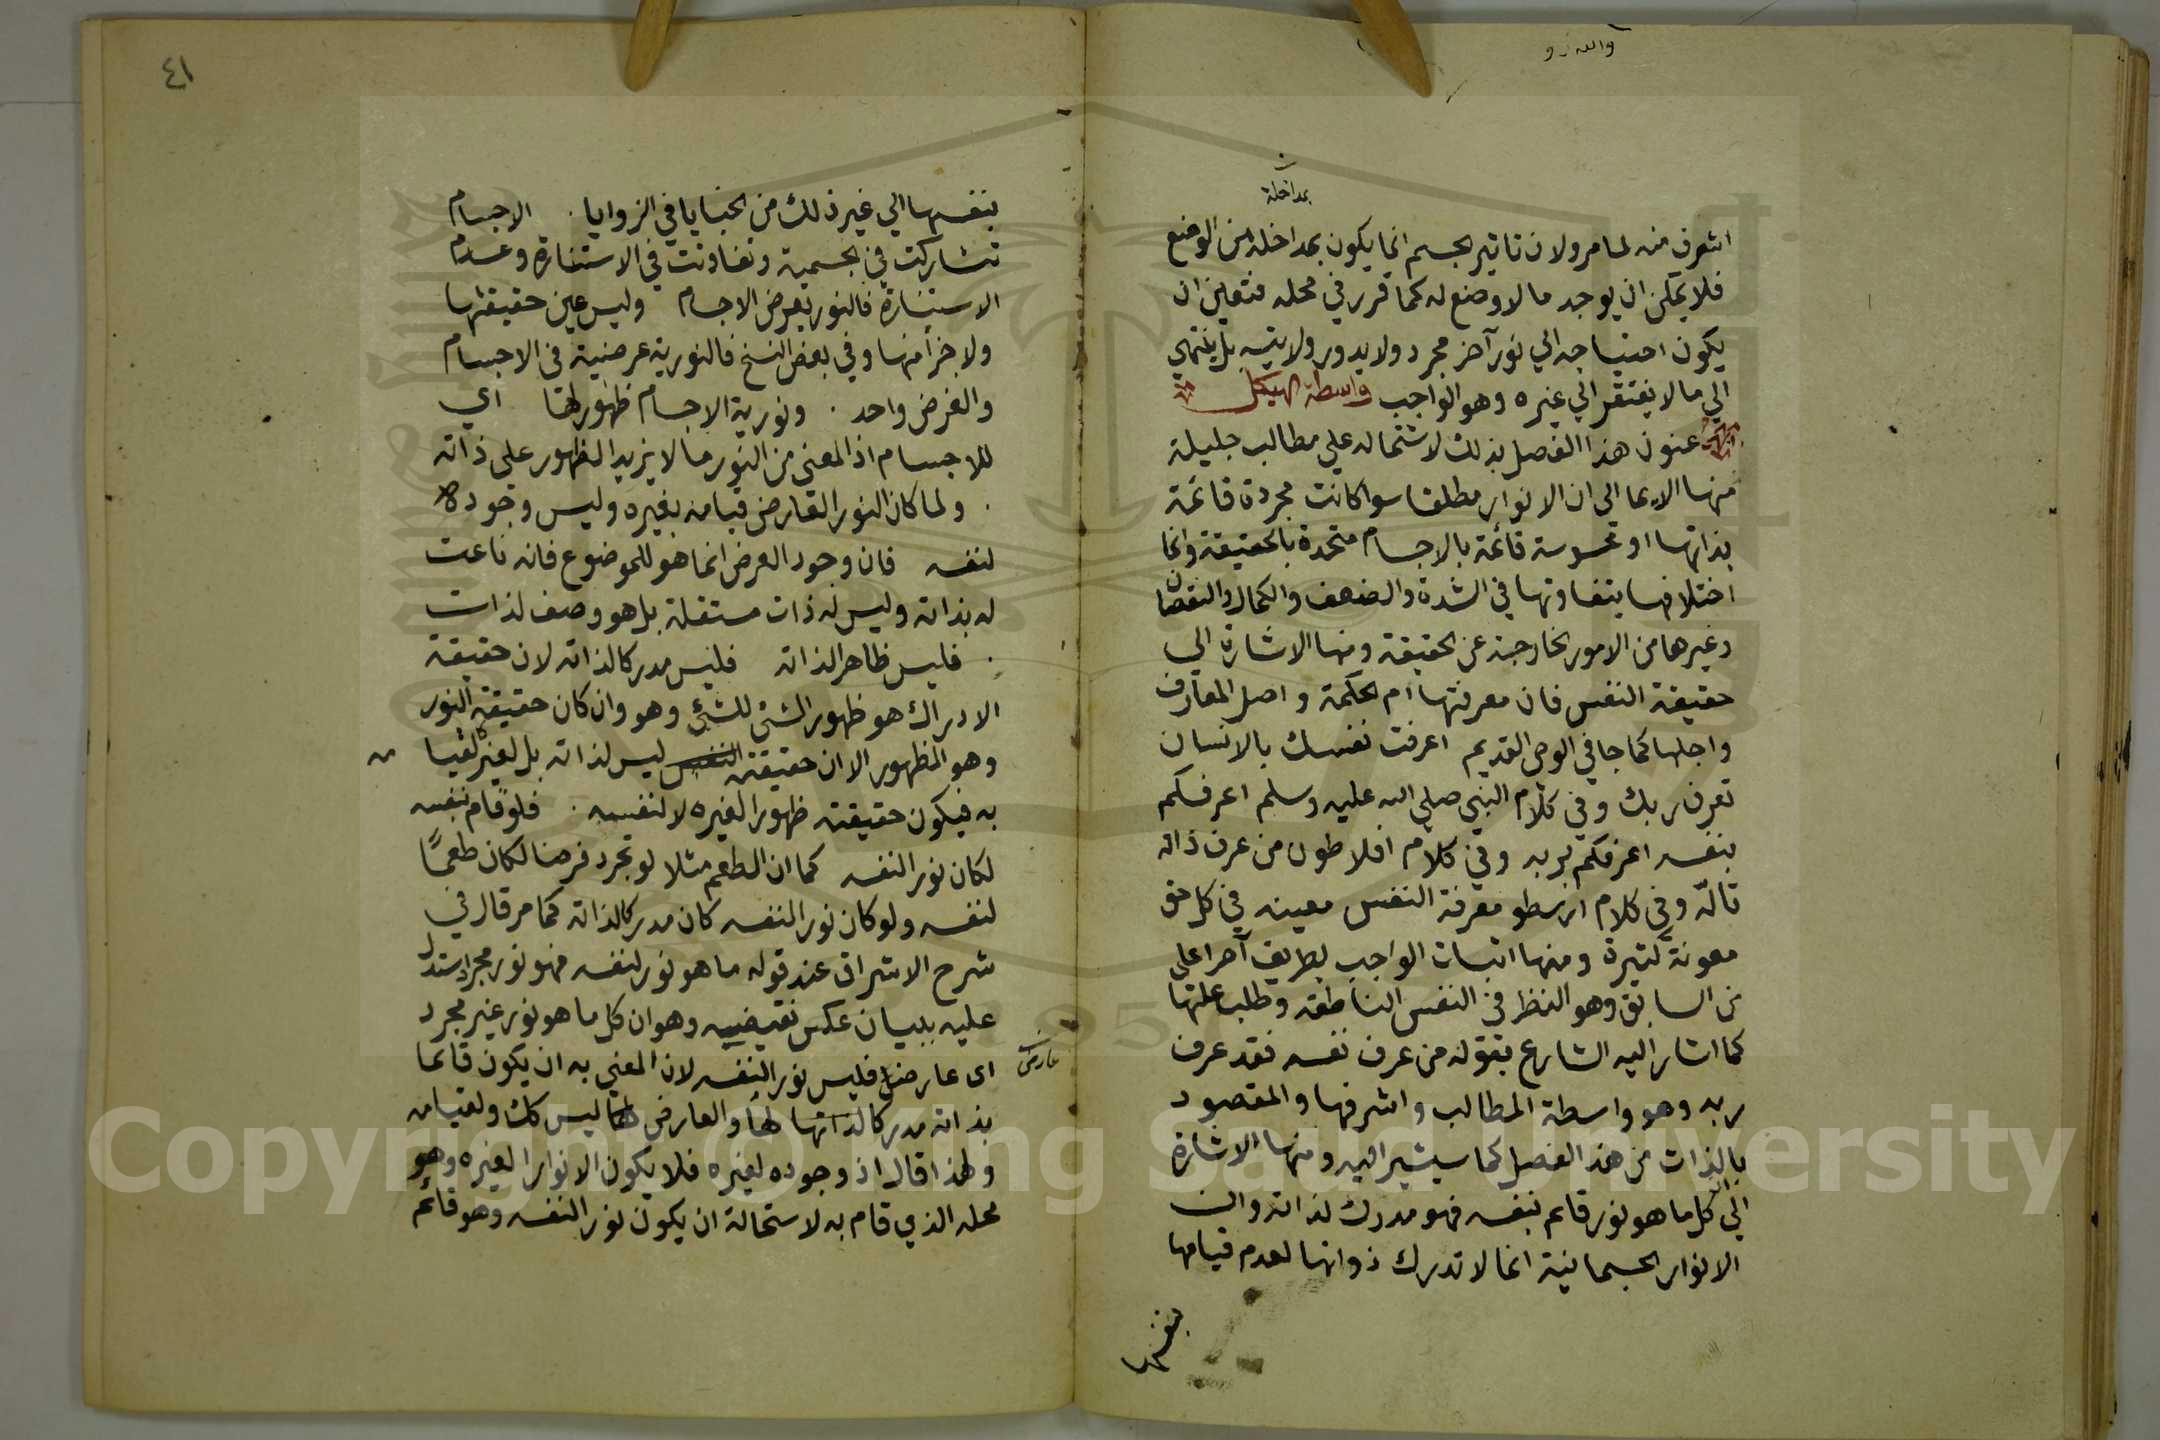 والله
بمداخلة
اشرف منه لما مر ولان تاثير الجسم انما يكون بمداخلة من الوضع
فلا يمكن ان يوجد ما لا وضع له كما قرر في محله فتعين ان
يكون احتياجه الي نور آخر مجرد ولا يدور ولا يتسـ بل ينتهي
الي ما لا يفتقر الي غيره وهو الواجب واسطة الهيكل
عنون هذا الفصل بذلك لاشتماله علي مطالب جليلة
منها الايما الى ان الانوار مطلقا سوا كانت مجردة قائمة
بذاتها او محسوسة قائمة بالاجسام متحدة بالحقيقة وانما
اختلافها بتفاوتها في الشدة والضعف والكمال والنقصان
وغيرها من الامور الخارجة عن الحقيقة ومنها الاشارة الي
حقيقة النفس فان معرفتها ام الحكمة واصل المعارف
واجلها كما جا في الوحى القديم اعرفت نفسك يا لانسان
تعرف ربك وفي كلام النبي صلي الله عليه وسلم اعرفكم
بنفسه اعرفكم بربه وفي كلام افلاطون من عرف ذاته
تألّه وفي كلام ارسطو معرفة النفس معينه في كل حق
معونة كثيرة ومنها اثبات الواجب بطريق آخر اعلى
من السابق وهو النظر في النفس الناطقه وطلب علتها
كما اشار اليه الشارع بقوله من عرف نفسه فقد عرف
ربه وهو واسطة المطالب واشرفها والمقصود
بالذات من هذ الفصل كما سيشير اليه ومنها الاشارة
الي كل ما هو نور قائم بنفسه فهو مدرك لذاته وان
الانوار الجسمانية انما لا تدرك ذواتها لعدم قيامها
بنفسها
٤١
بنفسها الي غير ذلك من الخبايا في الزوايا . الاجسام
تشاركت في الجسمية وتفاوتت في الاستنارة وعدم
الاستنارة فالنور بعرض الاجسام وليس عين حقيقتها
ولا جزأ منها وفي بعض النسخ فالنورية عرضية في الاجسام
والغرض واحد . ونورية الاجسام ظهورلها اي
للاجسام اذ المعني من النور ما لا يزيد الظهور على ذاته
. ولما كان النور العارض قيامه بغيره وليس وجوده
لنفسه فان وجود العرض انما هو للموضوع فانه ناعت
له بذاته وليس له ذات مستقلة بل هو وصف لذات
. فليس ظاهر الذاته فليس مدركا لذاته لان حقيقة
الادراك هو ظهور الشئ للشئ وهو وان كان حقيقة النور
وهو الظهور الا ان حقيقته النفس ليس لذاته بل لغيره لقيا مه
به فيكون حقيقته ظهورا لغيره لا لنفسه . فلو قام بنفسه
لكان نورا لنفسه كما ان الطعم مثلا لو تجرد فرضا لكان طعمًا
لنفسه ولو كان نورا لنفسه كان مدركا لذاته كما مر قال في
شرح الاشراق عند قوله ما هو نور لنفسه فهو نور مجرد استدل
عليه ببيان عكس نقيضيه وهو ان كل ما هو نور غير مجرد
عارض
اى عارضا فليس نورا لنفسه لان المعني به ان يكون قائما
بذاته مدركا لذاتها لها والعارض لها ليس كك ولقيامه
ولهذا قال اذ وجوده لغيره فلا يكون الا نورا لغيره وهو
محله الذي قام به لاستحالة ان يكون نورا لنفسه وهو قائم